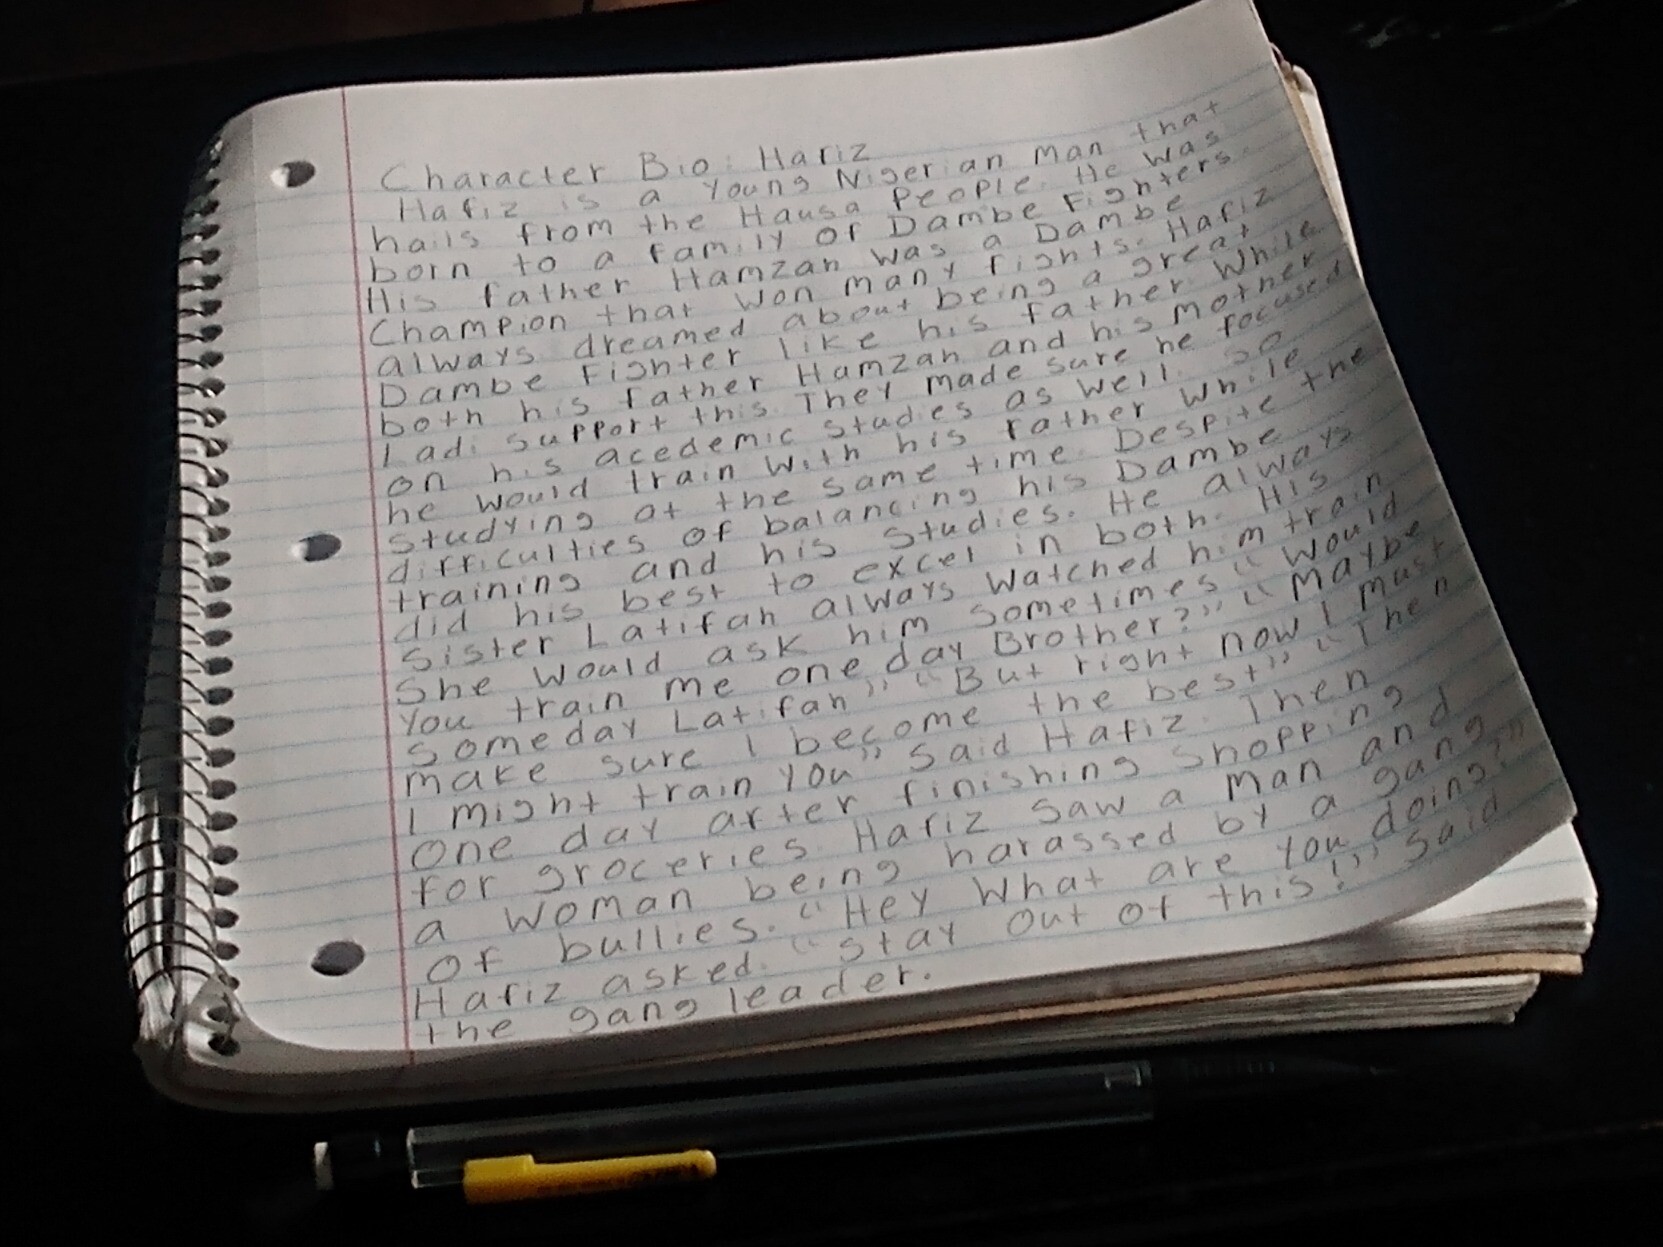 Character Bio: Hafiz
Hafiz is a Young Nigerian Man that
hails from the Hausa People. He was
born to a family of Dambe Fighters.
His father Hamzah was a Dambe
Champion that won many fights. Hafiz
always dreamed about being a great
Dambe Fighter like his father. While
both his father Hamzah and his mother
Ladi support this. They made sure he focused
on his acedemic studies as well. So
he would train with his father while
studying at the same time. Despite the
difficulties of balancing his Dambe
training and his studies. He always
did his best to excel in both. His
sister Latifah always watched him train
She would ask him sometimes "Would
You train me one day Brother?" "Maybe
someday Latifah" "But right now I must
make sure I become the best" "Then
I might train you" said Hafiz. Then
one day after finishing shopping
for groceries. Hafiz saw a man and
a woman being harassed by a gang
of bullies. "Hey What are you doing?"
Hafiz asked. "Stay out of this!" said
the gang leader.